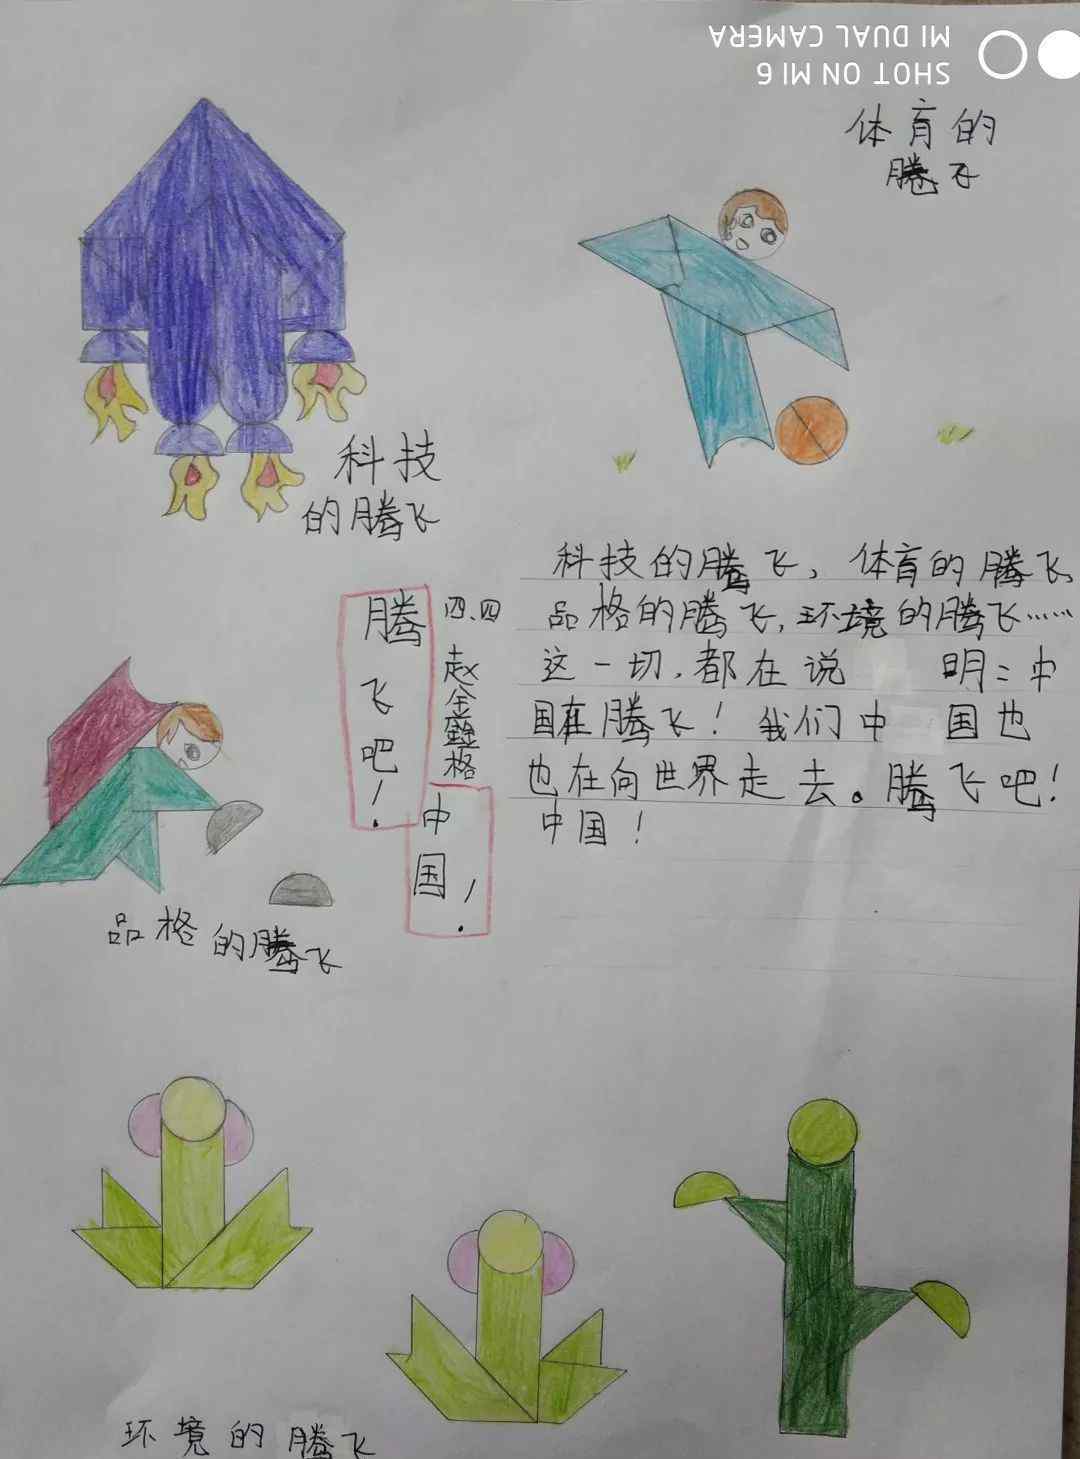 SHOT ON MI 6
MI DUAL CAMERA
体育的
腾飞
科技
的腾飞
科技的腾飞，体育的腾飞、
品格的腾飞，环境的腾飞……
这一切，都在说明：中
国在腾飞！我们中国也
也在向世界走去。腾飞吧！
中国！
腾飞吧！
中国！
四、四
赵金鑫格
品格的腾飞
环境的腾飞